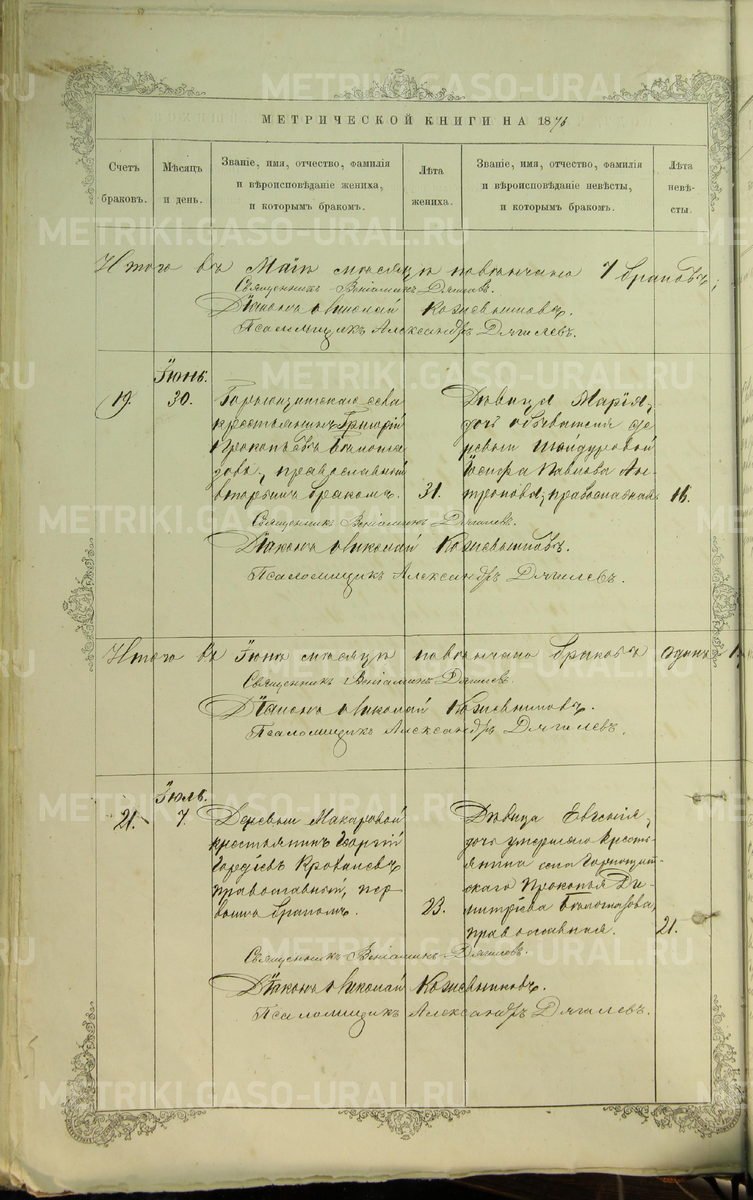 МЕТРИЧЕСКОЙ КНИГИ НА 1876
Счетъ браковъ.
Мѣсяцъ и день.
Званіе, имя, отчество, фамилія
и вѣроисповѣданіе жениха,
и которымъ бракомъ.
Лѣта жениха.
Званіе, имя, отчество, фамилія
и вѣроисповѣданіе невѣсты,
и которымъ бракомъ.
Лѣта невѣ-
сты.
Итого въ Маѣ мѣсяцѣ повѣнчано 7 браковъ;
Священникъ Веніаминъ Дягилевъ.
Діаконъ Николай Кожевниковъ.
Псаломщикъ Александръ Дягилевъ.
Іюнь.
19. 30.
Горнощитскаго села
крестьянинъ Григорій
Прокопьевъ Бѣлогла-
зовъ, православный
вторымъ бракомъ. 31.
Дѣвица Марія,
дочь обывателя де-
ревни Шайдуровой
Іосифа Павлова Ан-
тропова, православная 16.
Священникъ Веніаминъ Дягилевъ.
Діаконъ Николай Кожевниковъ.
Псаломщикъ Александръ Дягилевъ.
Итого въ Іюнѣ мѣсяцѣ повѣнчано браковъ одинъ 1,
Священникъ Веніаминъ Дягилевъ.
Діаконъ Николай Кожевниковъ.
Псаломщикъ Александръ Дягилевъ.
Іюль.
21. 7.
Деревни Макаровой
крестьянинъ Георгій
Гордѣевъ Кровалевъ
православный, пер
вымъ бракомъ. 23.
Дѣвица Евгенія,
дочь умершаго кресть-
янина села Горнощит-
скаго Прокопья Ди-
митріева Бѣлоглазова,
православная. 21.
Священникъ Веніаминъ Дягилевъ.
Діаконъ Николай Кожевниковъ.
Псаломщикъ Александръ Дягилевъ.
METRIKI.GASO-URAL.RU